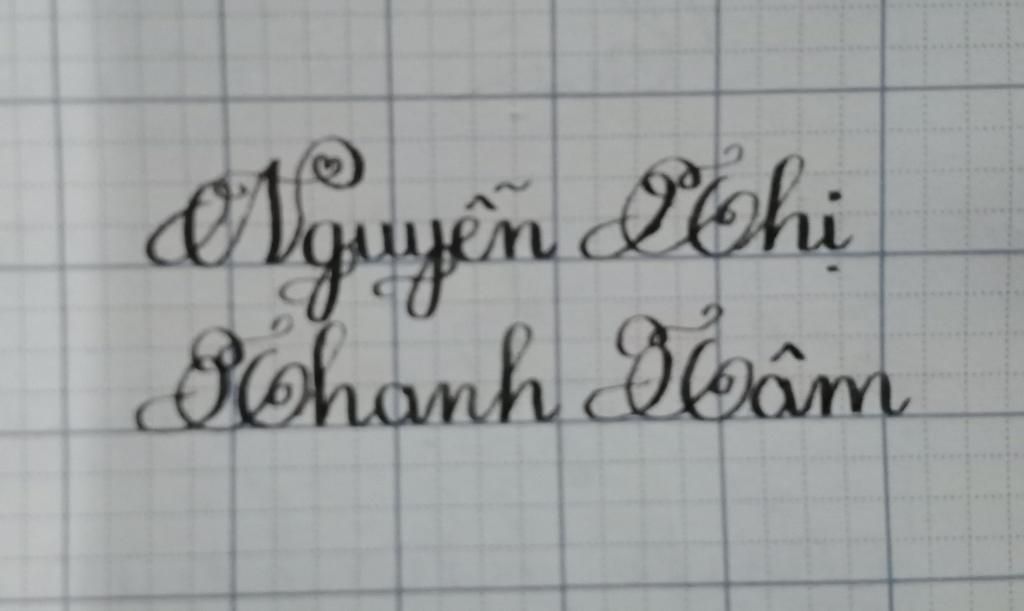 Nguyễn Thị
Thanh Tâm